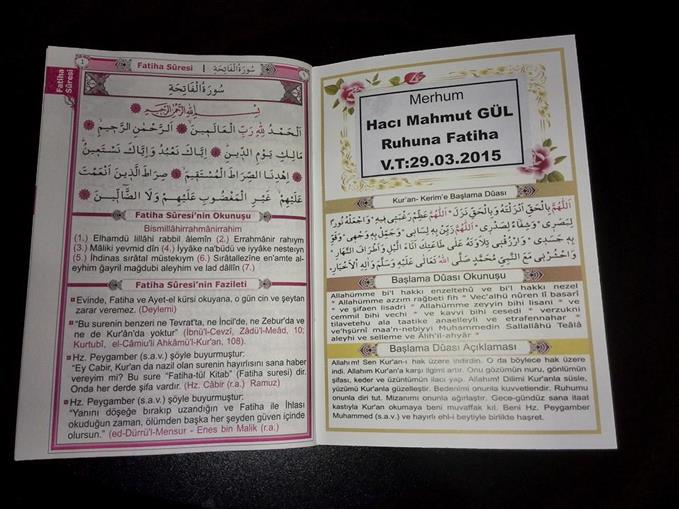 Fatiha Sûresi
Fatiha Sûresi | سُورَةُ الْفَاتِحَةِ
سُورَةُ الْفَاتِحَةِ
بِسْمِ اللّٰهِ الرَّحْمٰنِ الرَّحِيمِ
اَلْحَمْدُ لِلّٰهِ رَبِّ الْعَالَمِينَ اَلرَّحْمٰنِ الرَّحِيمِ
مَالِكِ يَوْمِ الدِّينِ اِيَّاكَ نَعْبُدُ وَاِيَّاكَ نَسْتَعِينُ
اِهْدِنَا الصِّرَاطَ الْمُسْتَقِيمَ صِرَاطَ الَّذِينَ اَنْعَمْتَ
عَلَيْهِمْ غَيْرِ الْمَغْضُوبِ عَلَيْهِمْ وَلَا الضَّٓالِّينَ
Fatiha Sûresi'nin Okunuşu
Bismillâhirrahmânirrahim
(1.) Elhamdü lillâhi rabbil âlemîn (2.) Errahmânir rahıym
(3.) Mâliki yevmid dîn (4.) İyyâke na'büdü ve iyyâke nesteıyn
(5.) İhdinas sırâtal müstekıym (6.) Sırâtallezîne en'amte al-
eyhim ğayril mağdubi aleyhim ve lad dâllîn (7.)
Fatiha Sûresi'nin Fazileti
Evinde, Fatiha ve Ayet-el kürsi okuyana, o gün cin ve şeytan
zarar veremez. (Deylemi)
"Bu surenin benzeri ne Tevrat'ta, ne İncil'de, ne Zebur'da ve
ne de Kurân'da yoktur" (İbnü'l-Cevzî, Zâdü'l-Meâd, 10;
Kurtubî, el-Câmiu'li Ahkâmü'l-Kur'an, 108).
Hz. Peygamber (s.a.v.) şöyle buyurmuştur:
"Ey Cabir, Kur'an da nazil olan surenin hayırlısını sana haber
vereyim mi? Bu sure "Fatiha-tül Kitab" (Fatiha suresi) dir.
Onda her derde şifa vardır. (Hz. Câbir (r.a.) Ramuz)
Hz. Peygamber (s.a.v.) şöyle buyurmuştur:
"Yanını döşeğe bırakıp uzandığın ve Fatiha ile İhlası
okuduğun zaman, ölümden başka her şeyden güven içinde
olursun." (ed-Dürrü'l-Mensur - Enes bin Malik (r.a.)
Merhum
Hacı Mahmut GÜL
Ruhuna Fatiha
V.T:29.03.2015
Kur'an- Kerim'e Başlama Dûası
اَللّٰهُمَّ بِالْحَقِّ اَنْزَلْتَهُ وَبِالْحَقِّ نَزَلَ اَللّٰهُمَّ عَظِّمْ رَغْبَتِى فِيهِ وَاجْعَلْهُ نُورًا
لِبَصَرِى وَشِفَاءً لِصَدْرِى اَللّٰهُمَّ زَيِّنْ بِهِ لِسَانِى وَجَمِّلْ بِهِ وَجْهِى وَقَوِّ
بِهِ جَسَدِى وَارْزُقْنِى تِلَاوَتَهُ عَلٰى طَاعَتِكَ اٰنَاءَ الَّيْلِ وَاَطْرَافَ النَّهَارِ
وَاحْشُرْنِى مَعَ النَّبِىِّ مُحَمَّدٍ صَلَّى اللهُ تَعَالٰى عَلَيْهِ وَسَلَّمَ وَاٰلِهِ الْاَخْيَارِ
Başlama Dûası Okunuşu
Allahümme bi'l hakkı enzeltehü ve bi'l hakkı nezel
* Allahümme azzım rağbeti fih * Vec'alhü nûren li basarî
* ve şifaen lisadri * Allahümme zeyyin bihi lisani * ve
cemmil bihi vechi * ve kavvi bihi cesedi * verzukni
tilavetehu ala taatike anaelleyli ve etrafennahar *
ve'hşurnî maa'n-nebiyyi Muhammedin Sallallâhü Teâlâ
aleyhi ve selleme ve Âlih'il-ahyâr *
Başlama Dûası Açıklaması
Allahım! Sen Kur'an-ı hak üzere indirdin. O da böylece hak üzere
indi. Allahım Kur'an'a karşı ilgimi artır. Onu gözümün nuru, gönlümün
şifası, keder ve üzüntümün ilacı yap. Allahım! Dilimi Kur'anla süsle,
yüzümü Kur'anla güzelleştir. Bedenimi onunla kuvvetlendir. Ruhumu
onunla diri tut. Mizanımı onunla ağırlaştır. Gece-gündüz sana itaat
kastıyla Kur'an okumaya beni muvaffak kıl. Beni Hz. Peygamber
Muhammed (s.a.v.) ve hayırlı ehl-i beytiyle birlikte haşret.